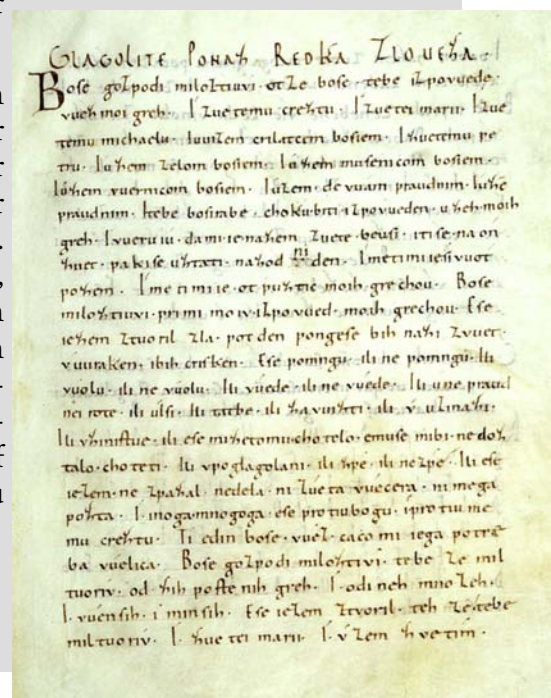 GLAGOLITE PONAZ REDKA ZLOUEZA.
Bose gozpodi miloztivvi. otze bose. tebe izpovuede.
vuez moi greh. I zuetemu creztu. I zuetei marii. I zue
temu michaelu. Iuuizem crilatcem bosiem. I zuetemu pe
tru. Iuzem zelom bosiem. Iuzem musenicom bosiem.
Iuzem vuernicom bosiem. Iuzem. devuam praudnim. Iuze
praudnim. Itebe bosirabe. chokubiti izpovueden. uzeh moih
greh. I vueruiu. dami ie nazem zuete. beusi. iti se na on
zuet. paki se uztati. nazodni den. Imeti mi ie sivuot
pozem. Imeti mi ie. ot puztic moih grechou. Bose
miloztivvi. primi moiv. izpovued. moih grechou. Ese
iezem ztvoril zla. pot den pongese bih nazi zvuet.
vuuraken. ibih crisken. Ese pomngu. ili ne pomngu. Ili
vuolu. ili ne vuolu. Ili vuede. ili ne vuede. Ili u ne praud
nei rote. ili ulsi. Ili tatbe. ili zavuizti. ili v uzmazi.
Ili vzinistve. ili ese mi ze tomu chotelo. emuse mi bi. ne doz
talo. choteti. Ili vpoglagolani. ili zpe. ili ne zpe. Ili ese
iezem. ne zpazal. nedela. ni zueta vuecera. ni mega
pozta. I inoga mnogoga. ese protiu bogu. i protiu me
mu creztu. Ti edin bose. vuez. caco mi iega potre
ba vuelica. Bose gozpodi miloztivi. tebe ze mil
tuoriv. od zih postenih greh. I od ineh mnozeh.
I vuensih. i minsih. Ese iezem ztvoril. teh ze tebe
miltuoriv. I zue tei marii. I v zem zvetim.